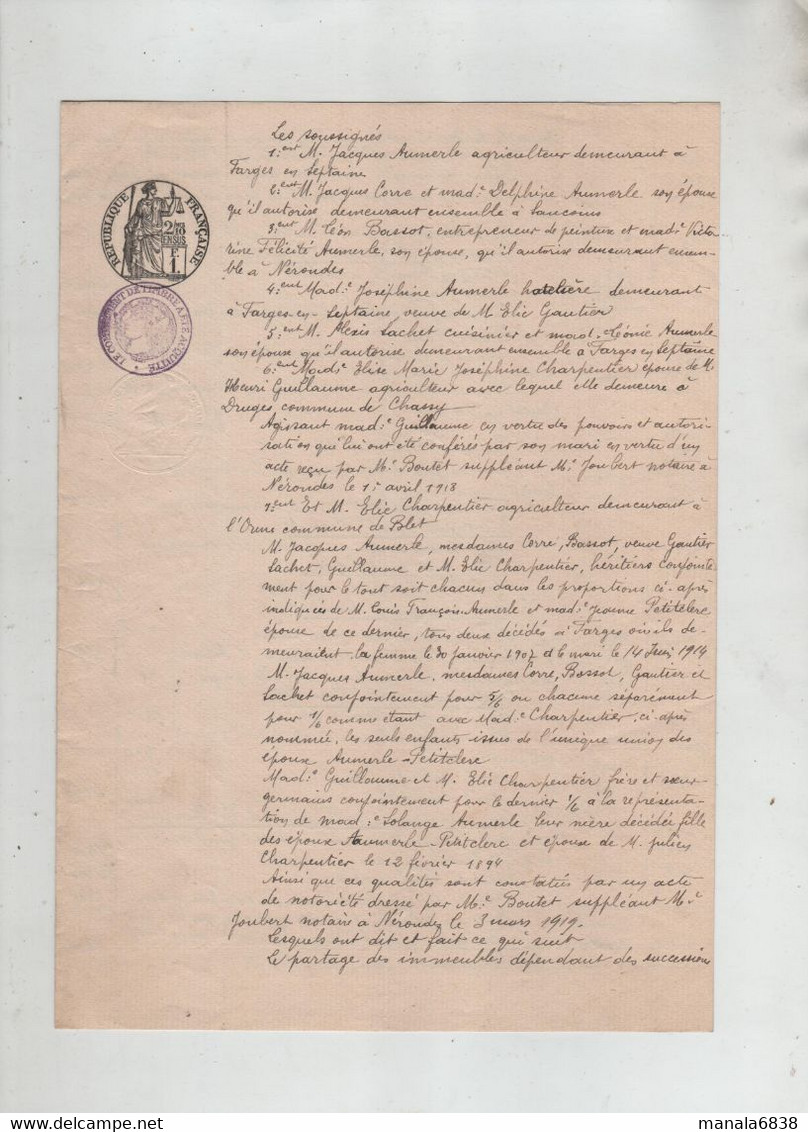 Les soussignés
1:ent M. Jacques Aumerle agriculteur demeurant à
Farges en Septaine
2:ent M. Jacques Corre et mad:e Delphine Aumerle son épouse
qu'il autorise demeurant ensemble à Sancoins
3:ent M. Léon Bassot, entrepreneur de peinture et mad:e Victo
rine Félicité Aumerle, son épouse, qu'il autorise demeurant ensem-
ble à Nérondes
4:ent Mad:e Joséphine Aumerle hotelière demeurant
à Farges-en-Septaine, veuve de M Elie Gautier
5:ent M. Alexis Sachet cuisinier et mad:e Léonie Aumerle
son épouse qu'il autorise demeurant ensemble à Farges en Septaine
6:ent Mad:e Elise Marie Joséphine Charpentier épouse de M.
Henri Guillaume agriculteur avec lequel elle demeure à
Druges, commune de Chassy
Agissant mad:e Guillaume en vertu des pouvoirs et autori-
sation qui lui ont été conférés par son mari en vertu d'un
acte reçu par M:e Boutet suppléant M:e Joubert notaire à
Nérondes le 1:r avril 1918
7:ent Et M. Elie Charpentier agriculteur demeurant à
l'Orme commune de Blet
M. Jacques Aumerle, mesdames Corre, Bassot, veuve Gautier
Sachet, Guillaume et M. Elie Charpentier, héritiers conjointe
ment pour le tout soit chacun dans les proportions ci-après
indiquées de M. Louis François Aumerle et mad:e Jeanne Petitclerc
épouse de ce dernier, tous deux décédés à Farges où ils de-
meuraient, la femme le 30 janvier 1907 et le mari le 14 Juin 1914
M. Jacques Aumerle, mesdames Corre, Bassot, Gautier et
Sachet conjointement pour 5/6 ou chacun séparément
pour 1/6 comme étant avec Mad:e Charpentier, ci-après
nommée, les seuls enfants issus de l'unique union des
époux Aumerle-Petitclerc
Mad:e Guillaume et M. Elie Charpentier frère et sœur
germains conjointement pour le dernier 1/6 à la représenta-
tion de mad:e Solange Aumerle leur mère décédée fille
des époux Aumerle-Petitclerc et épouse de M. Julien
Charpentier le 12 février 1894
Ainsi que ces qualités sont constatées par un acte
de notoriété dressé par M:e Boutet suppléant M:e
Joubert notaire à Nérondes le 3 mars 1919.
Lesquels ont dit et fait ce qui suit
Le partage des immeubles dépendant des succession
RÉPUBLIQUE FRANÇAISE
EN SUS
F.
1.
manala6838